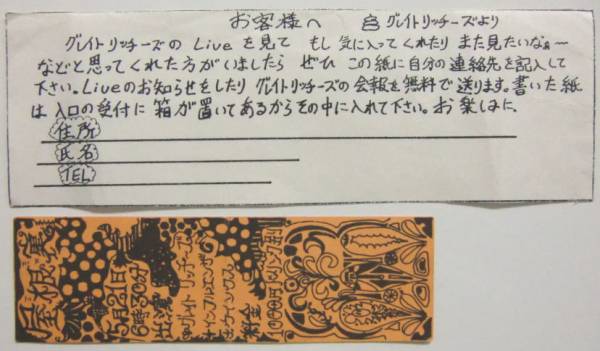 お客様へ グレイトリッチーズより
グレイトリッチーズの Live を見て もし気に入ってくれたり また見たいなぁ〜
などと思ってくれた方がいましたら ぜひ この紙に自分の連絡先を記入して
下さい。Liveのお知らせをしたり グレイトリッチーズの会報を無料で送ります。書いた紙
は 入口の受付に 箱が置いてあるからその中に入れて下さい。お楽しみに.
住所
氏名
TEL
屋根裏
5月21日
6時30分
出演
グレイト リッチーズ
料金
1000円